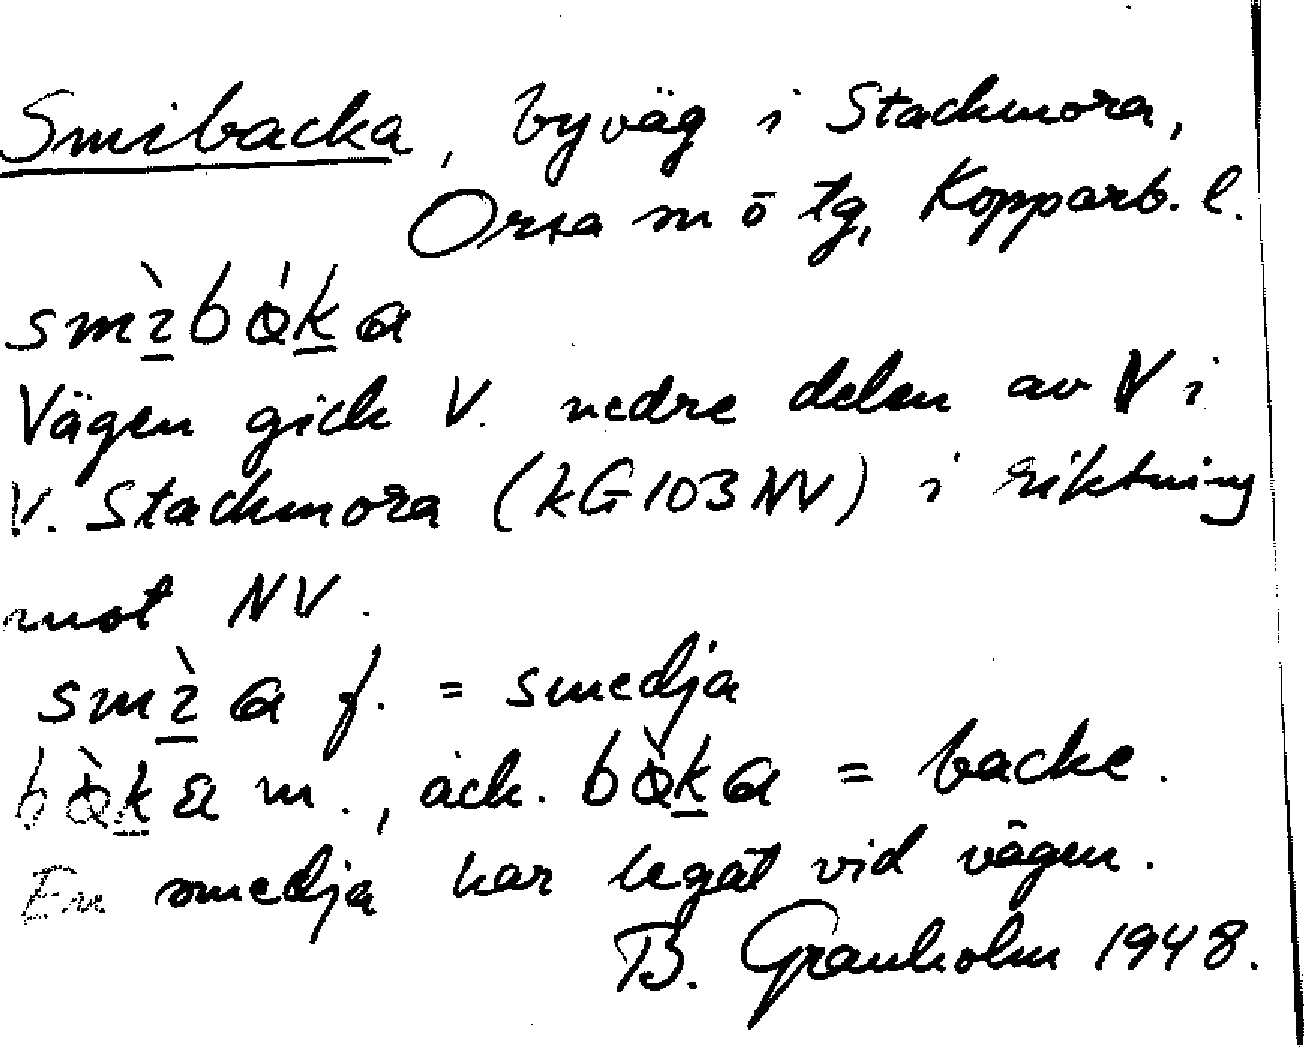 Smibacka, byväg i Stackmora,
Orsa sn o tg, Kopparb. l.
smìbàka
Vägen gick V. nedre delen av V i
V. Stackmora (kG103NV) i riktning
mot NV.
smìa f. = smedja
bàka m., ack. bàka = backe.
En smedja har legat vid vägen.
B. Granholm 1948.